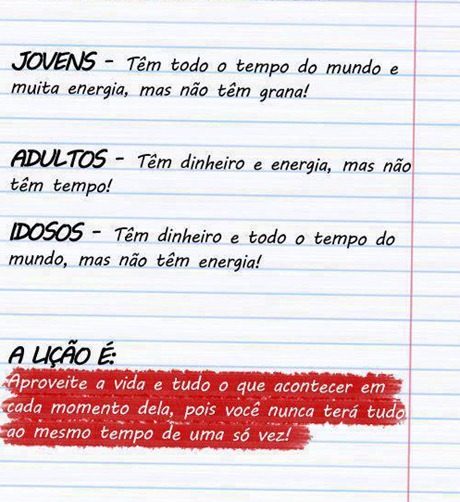 JOVENS - Têm todo o tempo do mundo e
muita energia, mas não têm grana!
ADULTOS - Têm dinheiro e energia, mas não
têm tempo!
IDOSOS - Têm dinheiro e todo o tempo do
mundo, mas não têm energia!
A LIÇÃO É:
Aproveite a vida e tudo o que acontecer em
cada momento dela, pois você nunca terá tudo
ao mesmo tempo de uma só vez!